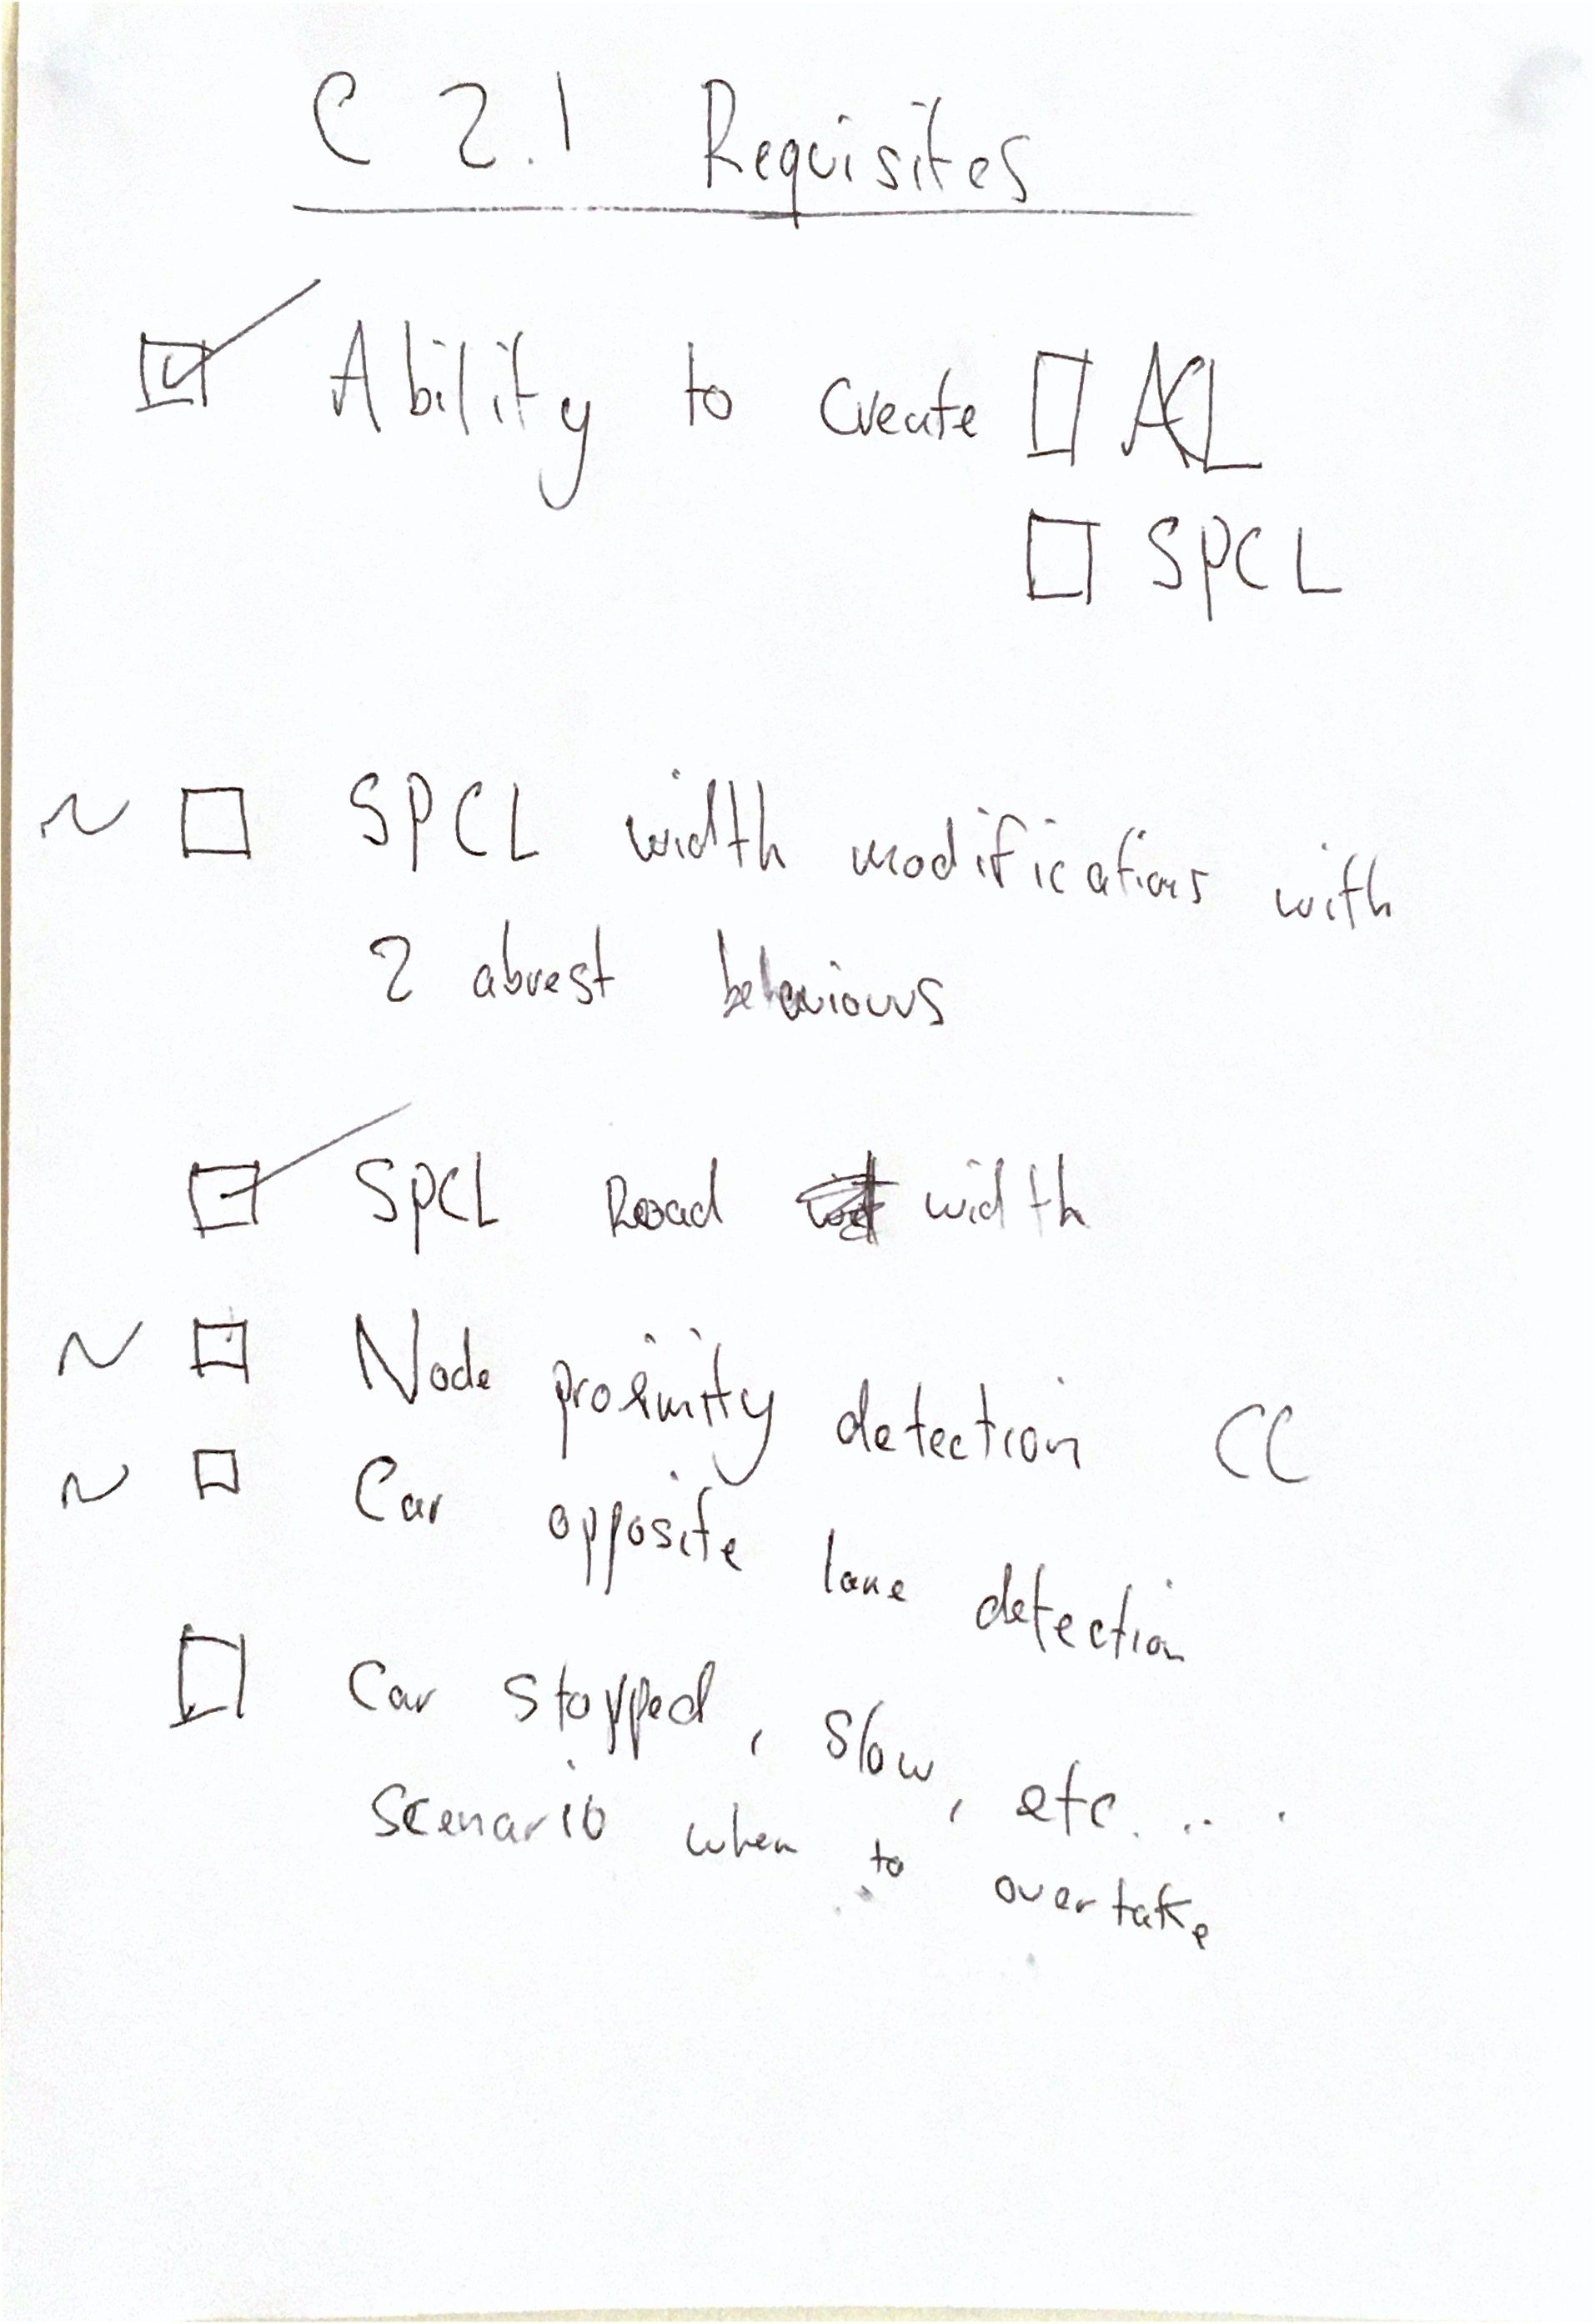 C 2.1 Requisites
☑ Ability to create ☐ ACL
☐ SPCL
~ ☐ SPCL width modifications with
2 abrest behaviours
☑ SPCL Road width
~ ☐ Node proximity detection CC
~ ☐ Car opposite lane detection
☐ Car stopped, slow, etc....
scenario when to overtake